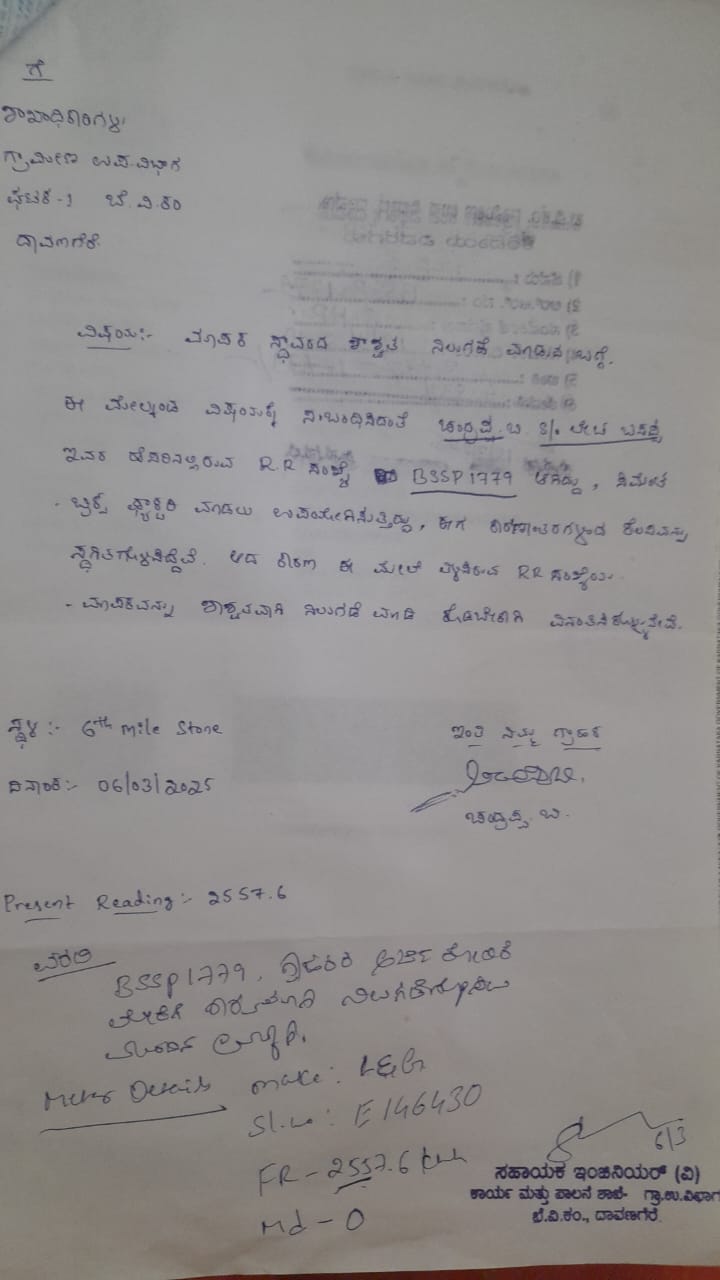 ಗೆ
ಶಾಖಾಧಿಕಾರಿಗಳು
ಗ್ರಾಮೀಣ ಉಪ.ವಿಭಾಗ
ಘಟಕ-1 ಬೆ.ವಿ.ಕಂ
ದಾವಣಗೆರೆ.
ವಿಷಯ:- ಮಾಪಕ ಸ್ಥಾವರದ ಶಾಶ್ವತ ನಿಲುಗಡೆ ಮಾಡುವ ಬಗ್ಗೆ.
ಈ ಮೇಲ್ಕಂಡ ವಿಷಯಕ್ಕೆ ಸಂಬಂಧಿಸಿದಂತೆ ಚಂದ್ರಪ್ಪ.ಬಿ S/o ಲೇಟ್ ಬಸಪ್ಪ
ಇವರ ಹೆಸರಿನಲ್ಲಿರುವ R.R ಸಂಖ್ಯೆ BSSP1779 ಆಗಿದ್ದು, ಸಿಮೆಂಟ್
ಬ್ರಿಕ್ಸ್ ಫ್ಯಾಕ್ಟರಿ ಮಾಡಲು ಉಪಯೋಗಿಸುತ್ತಿದ್ದು, ಈಗ ಕಾರಣಾಂತರಗಳಿಂದ ಕೆಲಸವನ್ನು
ಸ್ಥಗಿತಗೊಳಿಸಿದ್ದೇವೆ. ಆದ ಕಾರಣ ಈ ಮೇಲೆ ತಿಳಿಸಿರುವ RR ಸಂಖ್ಯೆಯ
ಮಾಪಕವನ್ನು ಶಾಶ್ವತವಾಗಿ ನಿಲುಗಡೆ ಮಾಡಿ ಕೊಡಬೇಕಾಗಿ ವಿನಂತಿಸಿಕೊಳ್ಳುತ್ತೇವೆ.
ಸ್ಥಳ:- 6th mile Stone
ಇಂತಿ ನಿಮ್ಮ ಗ್ರಾಹಕ
ದಿನಾಂಕ:- 06/03/2025
ಚಂದ್ರಪ್ಪ.ಬಿ.
Present Reading:- 2557.6
ವರದಿ
BSSP1779, ಗ್ರಾಹಕರ ಅರ್ಜಿ ಕೋರಿಕೆ
ಮೇರೆಗೆ
Meter Details make: L&G
Sl.no: E146430
FR - 2557.6 kwh
Md - 0
6/3
ಸಹಾಯಕ ಇಂಜಿನಿಯರ್ (ವಿ)
ಕಾರ್ಯ ಮತ್ತು ಪಾಲನೆ ಶಾಖೆ- ಗ್ರಾ.ಉ.ವಿಭಾಗ
ಬೆ.ವಿ.ಕಂ., ದಾವಣಗೆರೆ.